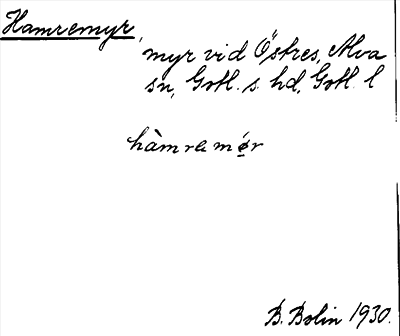 Hamremyr,
myr vid Östres, Alva
sn, Gotl. s. hd, Gotl. l
hàmramǿr
B. Bolin 1930.